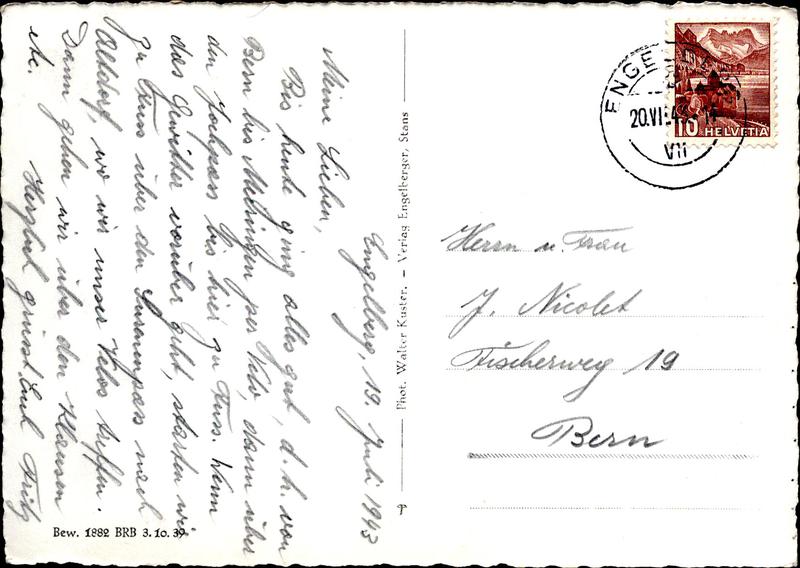 Engelberg, 19. Juli 1943
Meine Lieben,
Bis heute ging alles gut, d. h. von
Bern bis Meiringen per Velo, dann über
den Jochpass bis hier zu Fuss. Wenn
das Gewitter vorüber geht, starten wir
zu Fuss über den Surenenpass nach
Altdorf, wo wir unser Velos treffen.
Dann gehen wir über den Klausen
etc.
Herzlich grüsst Euch Fritz
Bew. 1882 BRB 3.10.39
Phot. Walter Kuster. – Verlag Engelberger, Stans
ENGE
20.VI
VII
10 HELVETIA
Herrn u. Frau
J. Nicolet
Fischerweg 19
Bern